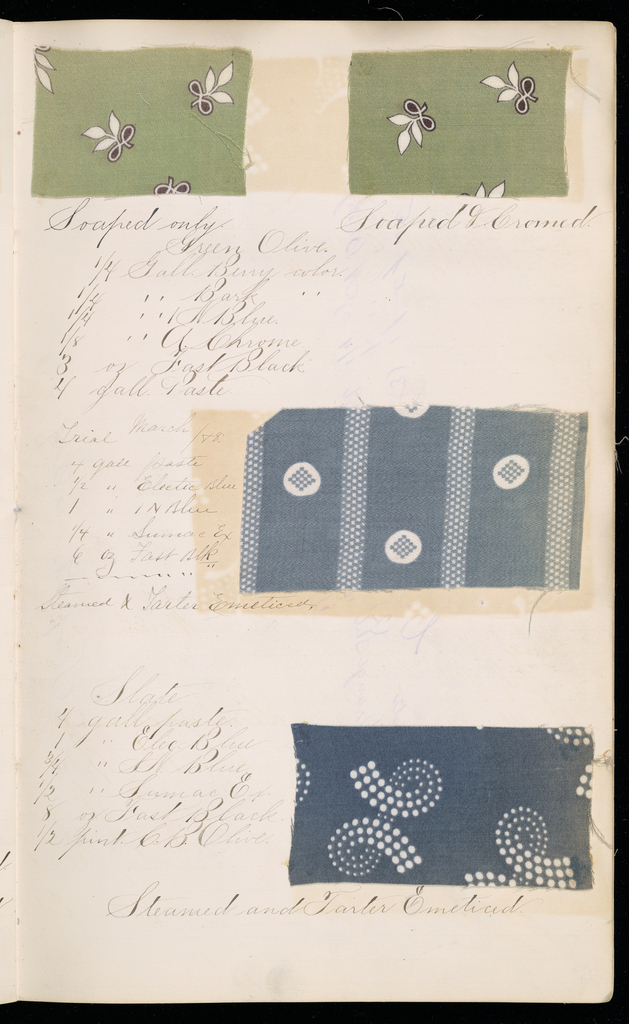 Soaped only. Soaped & Cromed.
Green Olive.
1/4 Gall. Berry color.
1/4 " Bark "
1/4 " 1 N Blue.
1/8 " A Chrome
3 oz Fast Black
4 gall. Paste
Trial March /88.
4 gall paste
1/2 " Electic Blue
1 " 1 N Blue
1/4 " Sumac Ex
6 oz Fast Blk
Steamed & Tarter Emeticed.
Slate
4 gall. paste.
1 " Elec. Blue
3/4 " Blue
1/2 " Sumac Ex.
8 oz Fast Black.
1/2 pint C. B. Olive.
Steamed and Tarter Emeticed.